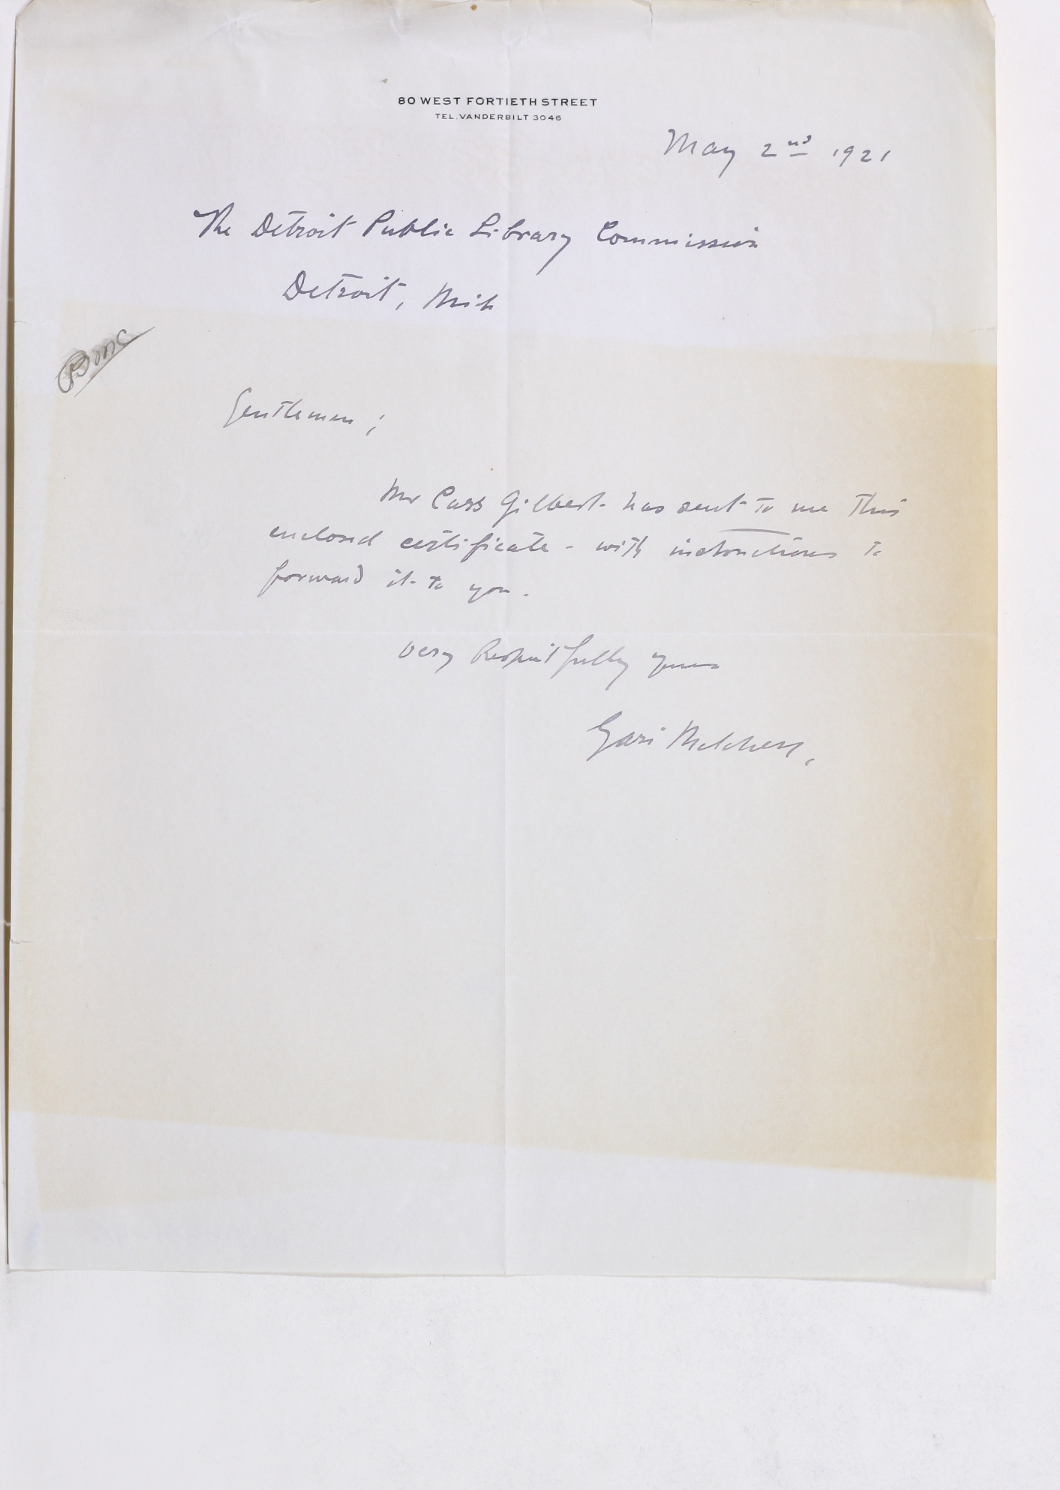 80 WEST FORTIETH STREET
TEL. VANDERBILT 3046
May 2nd 1921
The Detroit Public Library Commission
Detroit, Mich
Gentlemen;
Mr Cass Gilbert has sent to me this
enclosed certificate - with instructions to
forward it to you.
Very Respectfully yours
Gari Melchers,